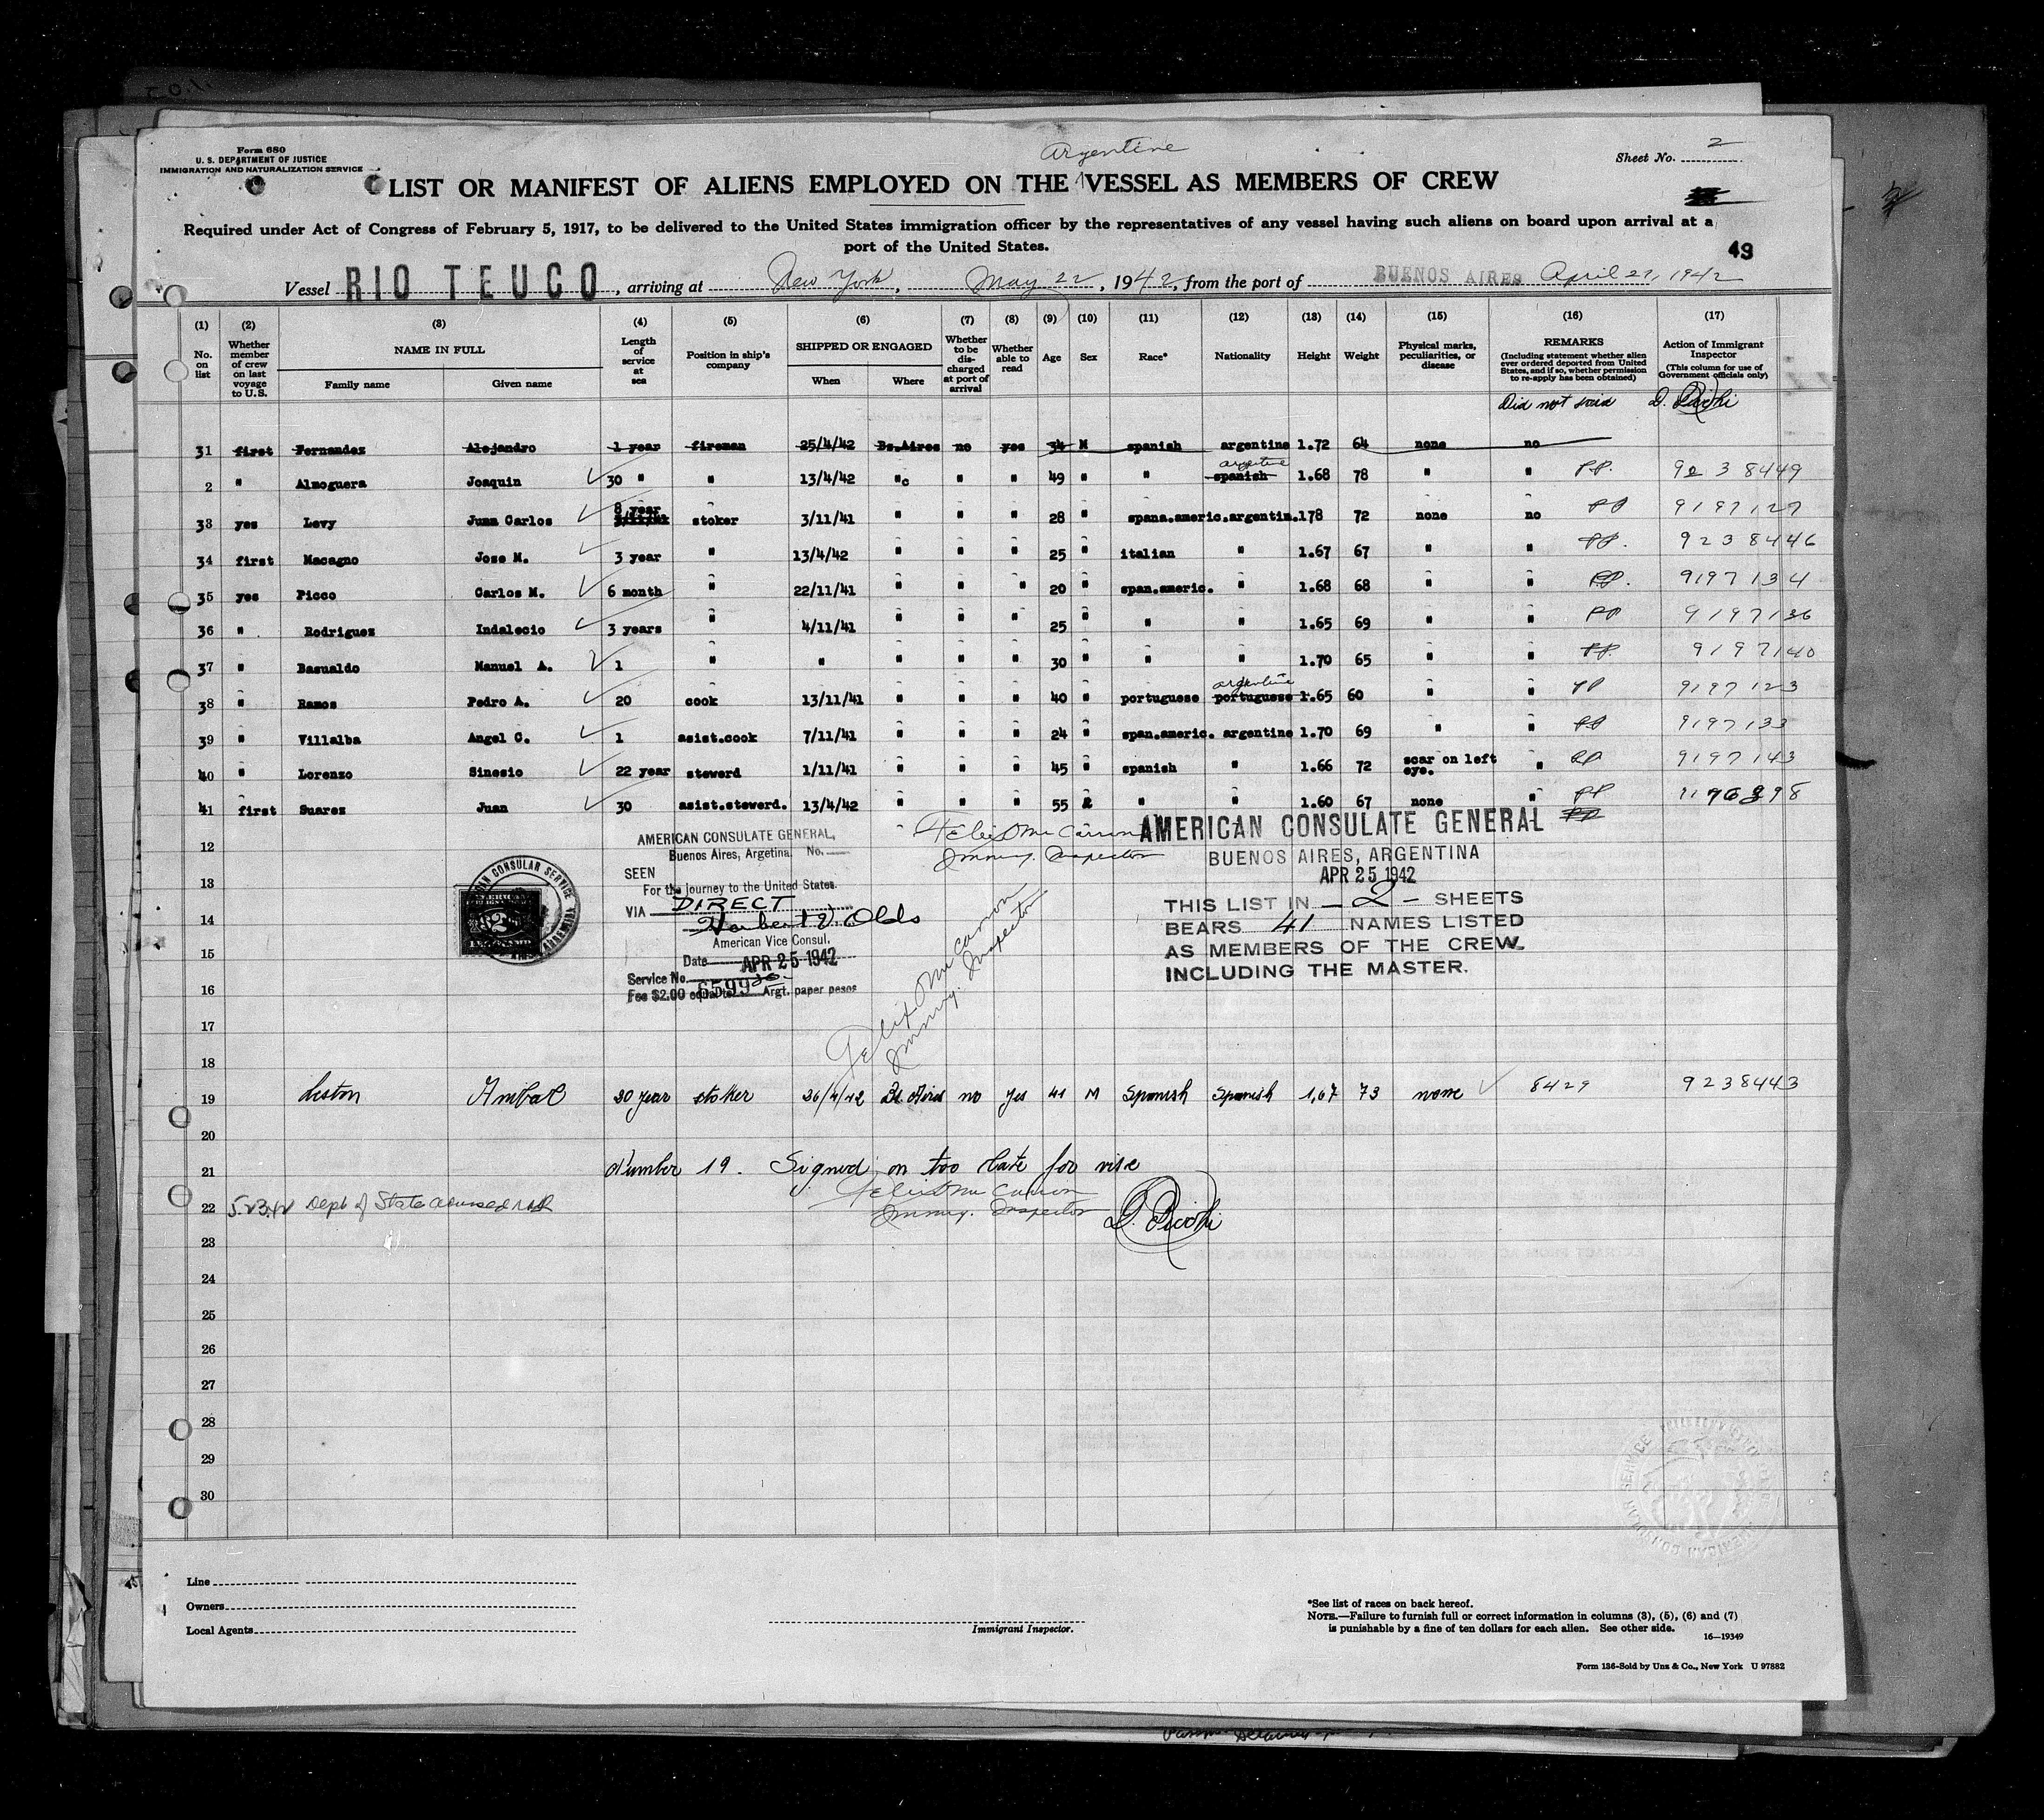 Form 680
U. S. DEPARTMENT OF JUSTICE
IMMIGRATION AND NATURALIZATION SERVICE
Argentine
Sheet No. 2
LIST OR MANIFEST OF ALIENS EMPLOYED ON THE VESSEL AS MEMBERS OF CREW
Required under Act of Congress of February 5, 1917, to be delivered to the United States immigration officer by the representatives of any vessel having such aliens on board upon arrival at a
port of the United States.
43
Vessel RIO TEUCO, arriving at New York, May 22, 1942, from the port of BUENOS AIRES April 27, 1942
(1) (2) (3) (4) (5) (6) (7) (8) (9) (10) (11) (12) (13) (14) (15) (16) (17)
No. on list Whether member of crew on last voyage to U.S. NAME IN FULL Family name Given name Length of service at sea Position in ship's company SHIPPED OR ENGAGED When Where Whether to be discharged at port of arrival Whether able to read Age Sex Race* Nationality Height Weight Physical marks, peculiarities, or disease REMARKS (Including statement whether alien ever ordered deported from United States, and if so, whether permission to re-apply has been obtained) Action of Immigrant Inspector (This column for use of Government officials only)
Did not said
31 first Fernandez Alejandro 1 year fireman 25/4/42 Bs.Aires no yes 34 M spanish argentine 1.72 64 none no
argentine
2 " Almoguera Joaquin 30 " " 13/4/42 " " " 49 " " spanish 1.68 78 " " PP. 9238449
8 year
33 yes Levy Juan Carlos stoker 3/11/41 " " " 28 " spana.americ.argentin.178 72 none no PP 9197127
34 first Macagno Jose M. 3 year " 13/4/42 " " " 25 " italian " 1.67 67 " " PP. 9238446
35 yes Picco Carlos M. 6 month " 22/11/41 " " " 20 " span.americ. " 1.68 68 " " PP. 9197134
36 " Rodriguez Indalecio 3 years " 4/11/41 " " " 25 " " " 1.65 69 " " PP 9197136
37 " Basualdo Manuel A. 1 " " " " " 30 " " " 1.70 65 " " PP. 9197140
argentine
38 " Ramos Pedro A. 20 cook 13/11/41 " " " 40 " portuguese portuguese 1.65 60 " " PP 9197123
39 " Villalba Angel C. 1 asist.cook 7/11/41 " " " 24 " span.americ. argentine 1.70 69 " " PP 9197133
40 " Lorenzo Sinesio 22 year stewerd 1/11/41 " " " 45 " spanish " 1.66 72 scar on left eye. " PP 9197143
41 first Suarez Juan 30 asist.stewerd. 13/4/42 " " " 55 " " 1.60 67 none " PP
PP
AMERICAN CONSULATE GENERAL,
Buenos Aires, Argetina. No.
SEEN
For the journey to the United States.
VIA DIRECT
Herbert V. Olds
American Vice Consul.
Date APR 25 1942
Service No. 6599
Fee $2.00 equal to Argt. paper pesos
Felix Mc Carron
Immig. Inspector
AMERICAN CONSULATE GENERAL
BUENOS AIRES, ARGENTINA
APR 25 1942
THIS LIST IN - 2 - SHEETS
BEARS 41 NAMES LISTED
AS MEMBERS OF THE CREW
INCLUDING THE MASTER.
Felix Mc Carron
Immig. Inspector
12
13
14
15
16
17
18
19 Liston Anibal 30 year stoker 26/4/42 Bs. Aires no yes 41 M Spanish Spanish 1,67 73 none 8429 9238443
20
21 Number 19. Signed on too late for vise
Felix Mc Carron
Immig. Inspector
22 5.23.42 Dept of State
23
24
25
26
27
28
29
30
Line
Owners
Local Agents
Immigrant Inspector.
*See list of races on back hereof.
NOTE.—Failure to furnish full or correct information in columns (3), (5), (6) and (7)
is punishable by a fine of ten dollars for each alien. See other side.
16—19349
Form 136-Sold by Unz & Co., New York U 97882